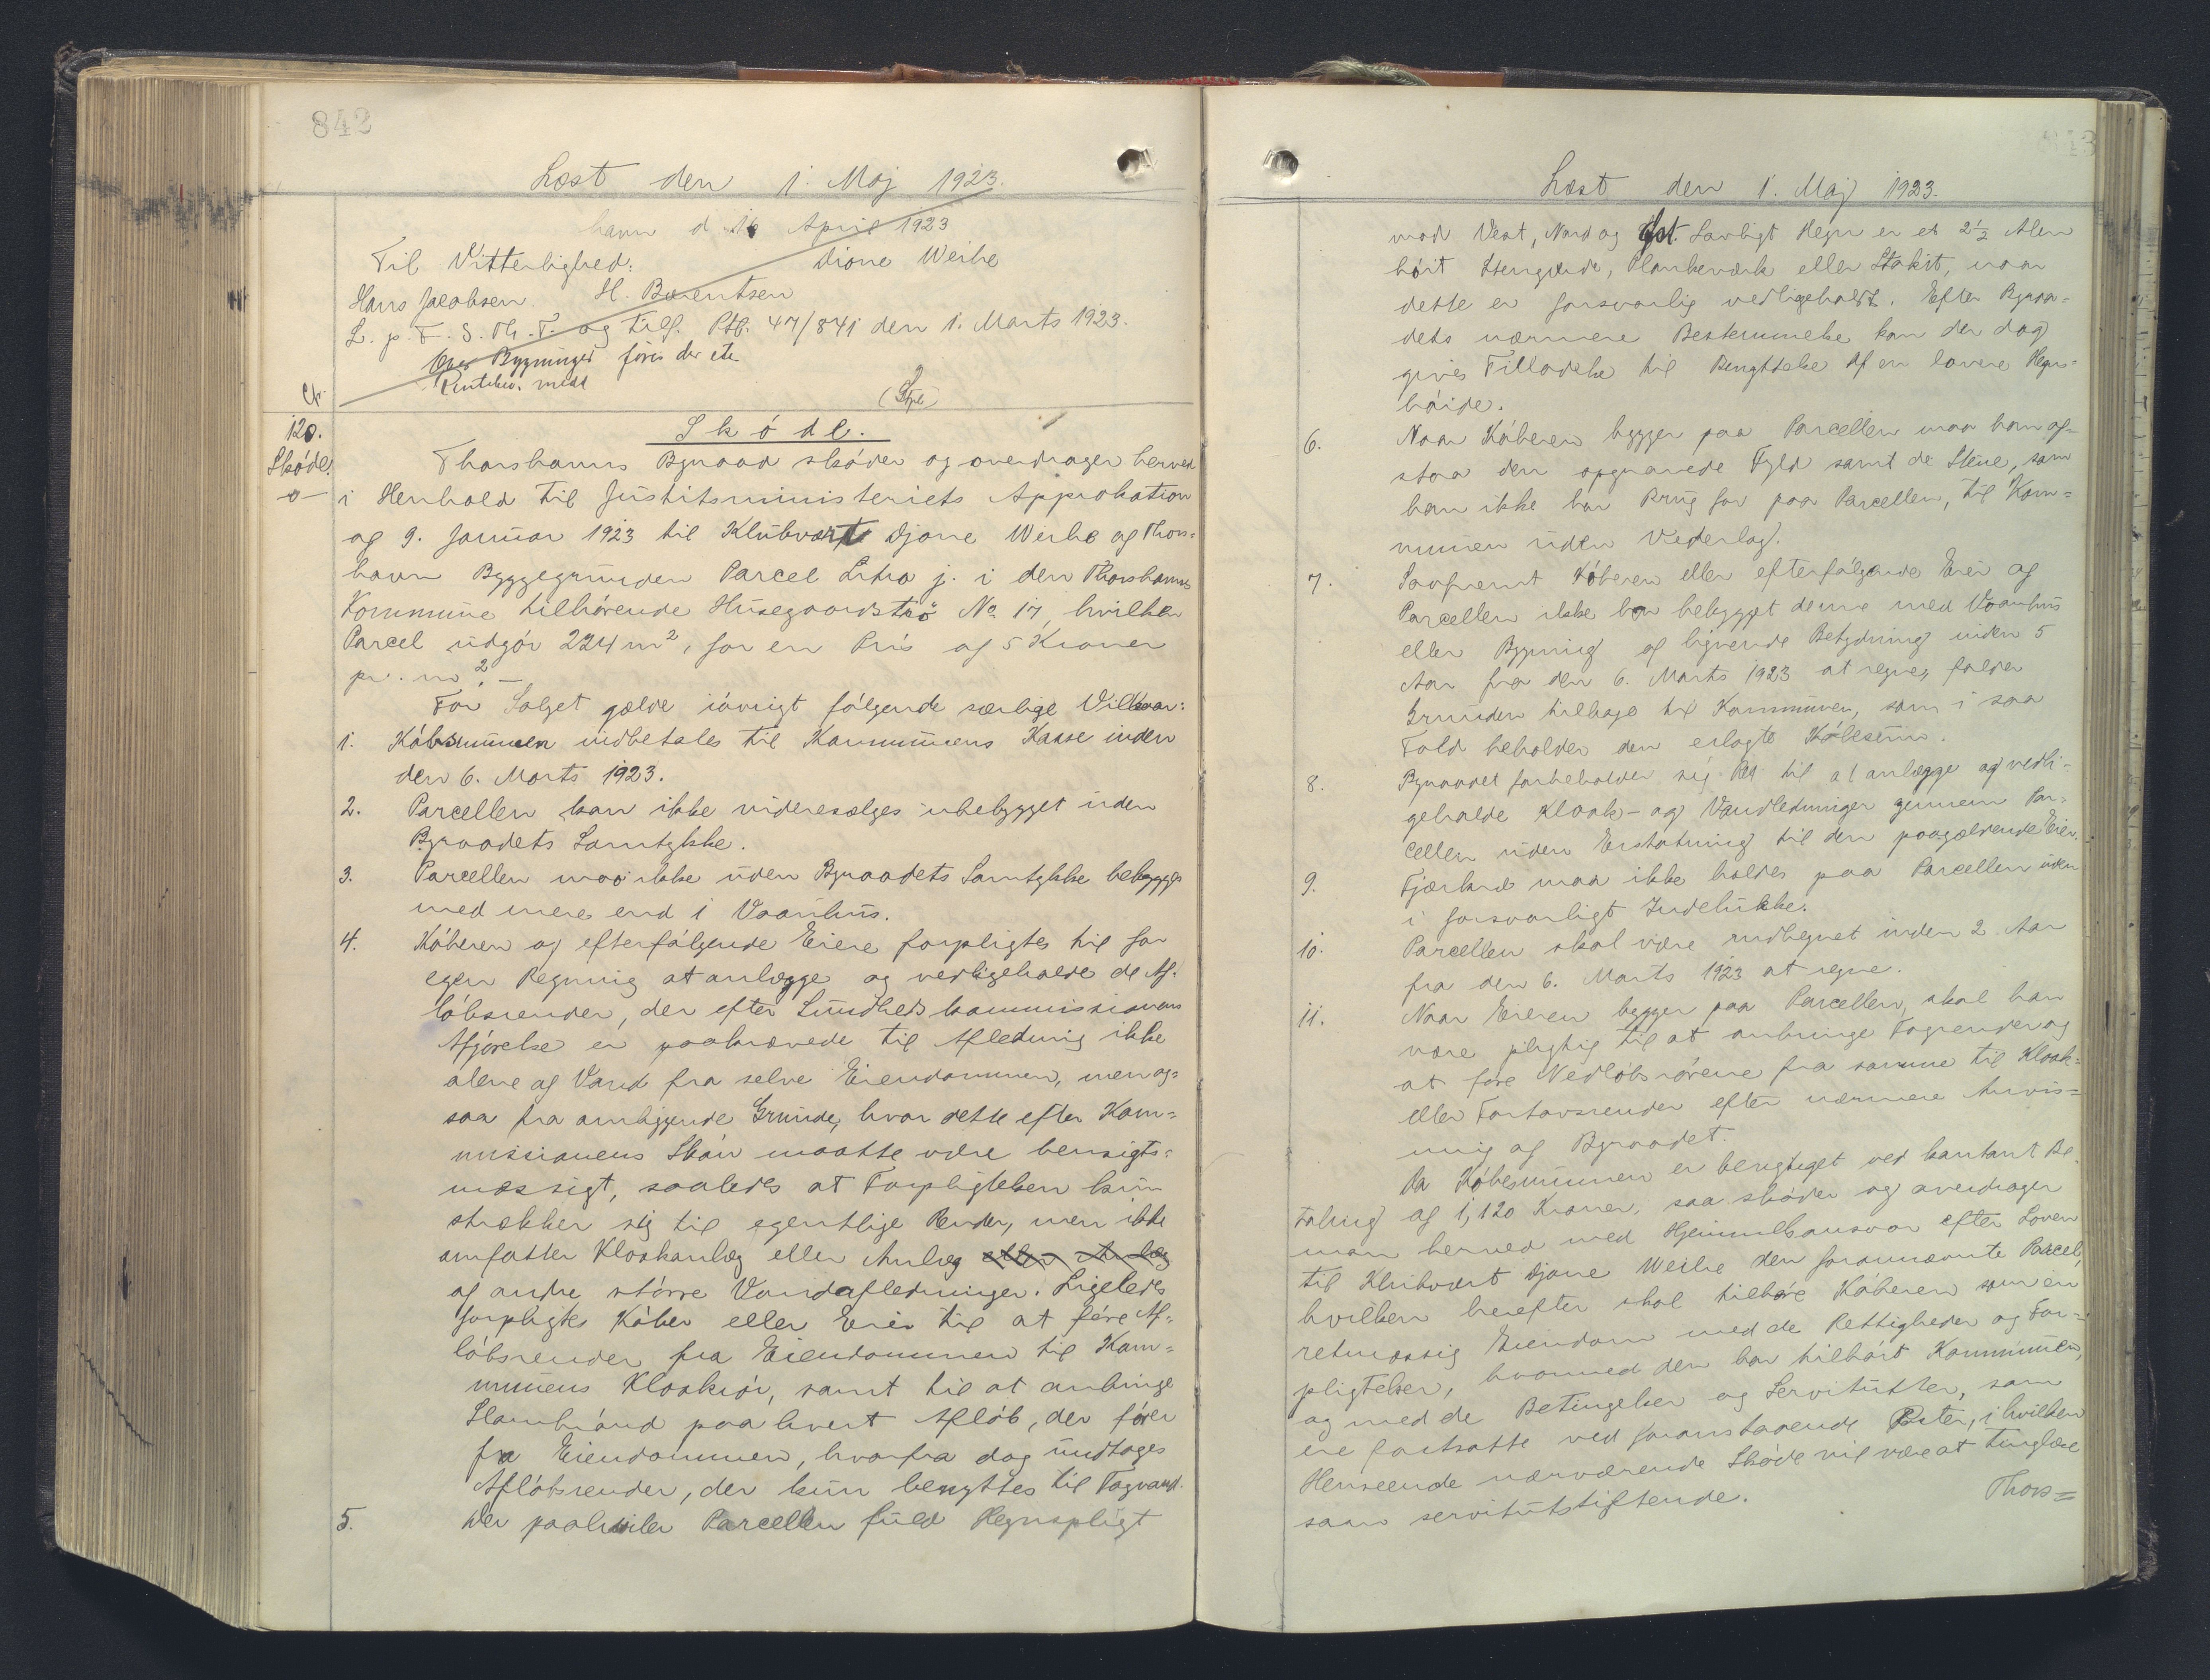 842
Læst den 1. Maj 1923.
havn d. 16 April 1923
Til Vitterlighed: Dione Weihe
Hans Jacobsen H. Barentsen
L. p. F. S. Th. T. og tilf. Ptb. 47/841 den 1. Marts 1923.
Over Bygninger föres der ikke
120.
Skóde.
Skóde.
Thorshavns Byraad skóder og overdrager herved
i Henhold til Justitsministeriets Approbation
af 9. Januar 1923 til Klubvært Djone Weihe af Thors=
havn Byggegrunden Parcel Litra j. i den Thorshavns
Kommune tilhórende Húsegaardströ No 17, hvilken
Parcel udgór 224 m², for en Pris af 5 Kroner
pr. m².–
For Salget gælde ióvrigt fólgende særlige Vilkaar:
1. Kóbesummen indbetales til Kommunens Kasse inden
den 6. Marts 1923.
2. Parcellen kan ikke videresælges ubebygget uden
Byraadets Samtykke.
3. Parcellen maa ikke uden Byraadets Samtykke bebygges
med mere end 1 Vaanhus.
4. Kóberen og efterfólgende Eiere forpligtes til for
egen Regning at anlægge og vedligeholde de Af=
lóbsrender, der efter Sundhedskommissionens
Afgórelse er paakrævede til Afledning ikke
alene af Vand fra selve Eiendommen, men og=
saa fra omliggende Grunde, hvor dette efter Kom=
missionens Skón maatte være hensigts=
mæssigt, saaledes at Forpligtelsen kun
strækker sig til egentlige Render, men ikke
omfatter Kloakanlæg eller Anlæg eller Anlæg
af andre stórre Vandafledninger. Ligeledes
forpligtes Kóber eller Eier til at fóre Af=
lóbsrender fra Eiendommen til Kom=
munens Kloakrór, samt til at anbringe
Slambrónd paa hvert Aflób, der fórer
fra Eiendommen, hvorfra dog undtages
Aflóbsrender, der kun benyttes til Tagvand.
5. Der paahviler Parcellen fuld Hegnspligt
Læst den 1. Maj 1923.
mod Vest, Nord og Øst. Lovligt Hegn er et 2½ Alen
hóit Stengærde, Plankeværk eller Stakit, naar
dette er forsvarlig vedligeholdt. Efter Byraa=
dets nærmere Bestemmelse kan der dog
gives Tilladelse til Benyttelse af en lavere Hegns=
hóide.
6. Naar Kóberen bygger paa Parcellen maa han af=
staa den opgravede Fyld samt de Stene, som
han ikke har Brug for paa Parcellen, til Kom=
munen uden Vederlag.
7. Saafremt Kóberen eller efterfólgende Eier af
Parcellen ikke har bebygget denne med Vaanhus
eller Bygning af lignende Betydning inden 5
Aar fra den 6. Marts 1923 at regne, falder
Grunden tilbage til Kommunen, som i saa
Fald beholder den erlagte Kóbesum.
8. Byraadet forbeholder sig Ret til at anlægge og vedli=
geholde Kloak- og Vandledninger gennem Par=
cellen uden Erstatning til den paagældende Eier.
9. Fjærkræ maa ikke holdes paa Parcellen uden
i forsvarligt Indelukke.
10. Parcellen skal være indhegnet inden 2 Aar
fra den 6. Marts 1923 at regne.
11. Naar Eieren bygger paa Parcellen, skal han
være pligtig til at anbringe Tagrender og
at fóre Nedlóbsrórene fra samme til Kloak=
eller Fortovsrender efter nærmere Anvis=
ning af Byraadet.
Da Kóbesummen er berigtiget ved kontant Be=
taling af 1,120 Kroner, saa skóder og overdrager
man herved med Hjemmelsansvar efter Loven
til Klubvært Djone Weihe den forannævnte Parcel,
hvilken herefter skal tilhóre Kóberen som en
retmæssig Eiendom med de Rettigheder og For=
pligtelser, hvormed den har tilhórt Kommunen,
og med de Betingelser og Servitutter, som
ere fastsatte ved foranstaaende Poster, i hvilken
Henseende nærværende Skóde vil være at tinglæse
som servitutstiftende. Thors=